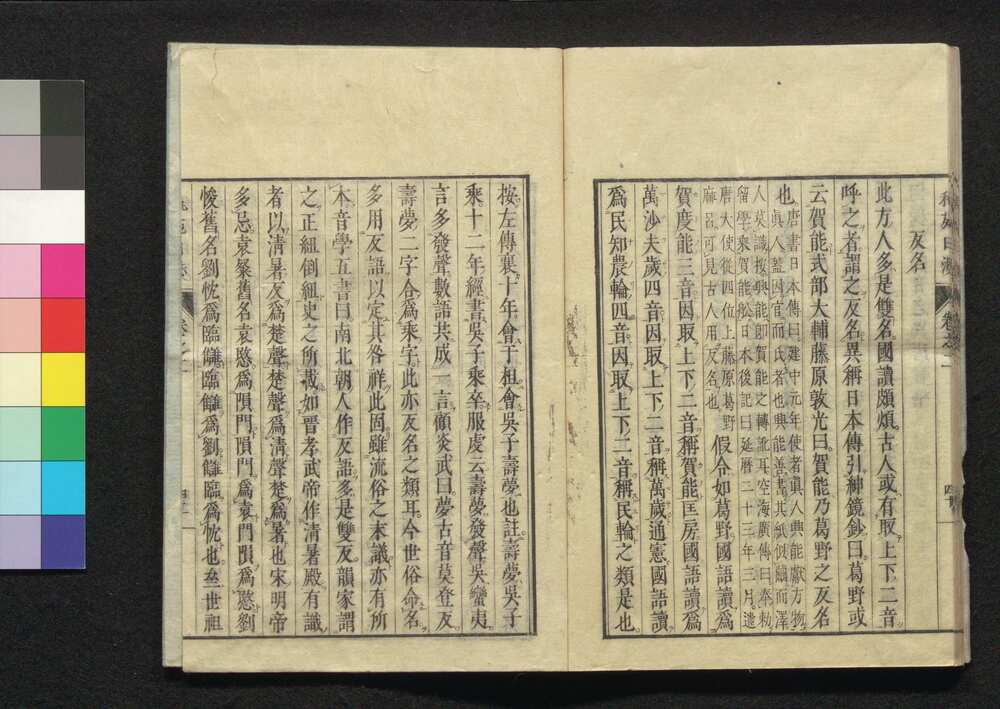 反名
此方人多是雙名國讀頗煩古人或有取上下二音
呼之者謂之反名異稱日本傳引神鏡鈔曰葛野或
云賀能式部大輔藤原敦光曰賀能乃葛野之反名
也唐書日本傳曰建中元年使者眞人興能獻方物
眞人蓋因官而氏者也興能善書其紙似繭而澤
人莫識按興能卽賀能之轉訛耳空海廣傳曰奉勅
留學乘賀能舩日本後記曰延曆二十三年三月遣
唐大使從四位上藤原葛野
麻呂可見古人用反名也假令如葛野國語讀爲
賀度能三音因取上下二音稱賀能匡房國語讀爲
萬沙夫歲四音因取上下二音稱萬歲通憲國語讀
爲民知農輪四音因取上下二音稱民輪之類是也
按左傳襄十年會于柤會吳子壽夢也註壽夢吳子
乘十二年經書吳子乘卒服虔云壽夢發聲吳蠻夷
言多發聲數語共成一言顧炎武曰夢古音莫登反
壽夢二字合爲乘字此亦反名之類耳今世俗命名
多用反語以定其咎祥此固雖流俗之末議亦有所
本音學五書曰南北朝人作反語多是雙反韻家謂
之正紐倒紐史之所載如晉孝武帝作清暑殿有識
者以清暑反爲楚聲楚聲爲清聲楚爲暑也宋明帝
多忌袁粲舊名袁愍爲隕門隕門爲袁門隕爲愍劉
悛舊名劉忱爲臨讎臨讎爲劉讎臨爲忱也
世祖